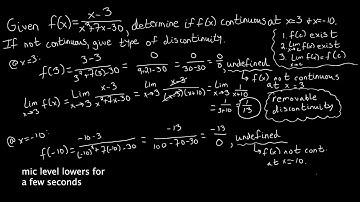 Given f(x) = x-3 / x²+7x-30, determine if f(x) continuous at x=3 + x=-10.
If not continuous, give type of discontinuity.
1. f(c) exist
2. lim x→c f(x) exist
3. lim x→c f(x) = f(c)
@ x=3:
f(3) = 3-3 / 3²+7(3)-30 = 0 / 9+21-30 = 0 / 30-30 = 0/0, undefined
↳ f(x) not continuous at x=3
lim x→3 f(x) = lim x→3 x-3 / x²+7x-30 = lim x→3 x-3 / (x-3)(x+10) = lim x→3 1 / x+10
= 1 / 3+10 = 1/13
removable discontinuity
@ x=-10:
f(-10) = -10-3 / (-10)²+7(-10)-30 = -13 / 100-70-30 = -13 / 0, undefined
↳ f(x) not cont. at x=-10.
mic level lowers for
a few seconds